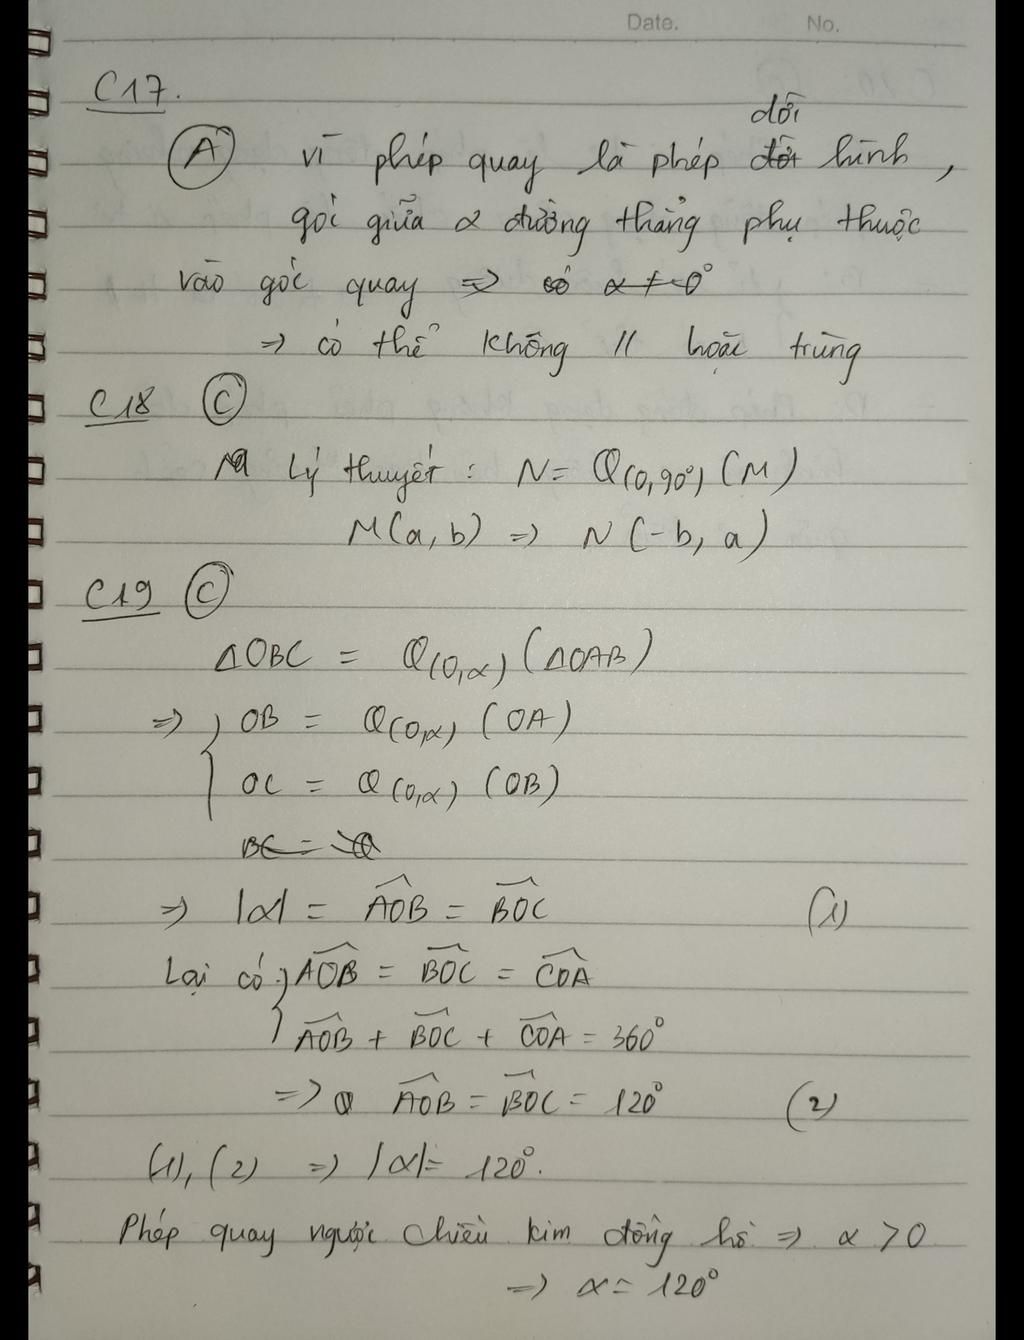 Date. No.
C17.
(A) vì phép quay là phép dời hình,
góc giữa 2 đường thẳng phụ thuộc
vào góc quay => có α ≠ 0°
=> có thể không // hoặc trùng
C18 (C)
Lý thuyết : N = Q(O,90°) (M)
M(a, b) => N (-b, a)
C19 (C)
ΔOBC = Q(O,α) (ΔOAB)
=> { OB = Q(O,α) (OA)
OC = Q(O,α) (OB)
BC = Q
=> |α| = AOB = BOC (1)
Lại có { AOB = BOC = COA
AOB + BOC + COA = 360°
=> AOB = BOC = 120° (2)
(1), (2) => |α| = 120°.
Phép quay ngược chiều kim đồng hồ => α > 0
=> α = 120°